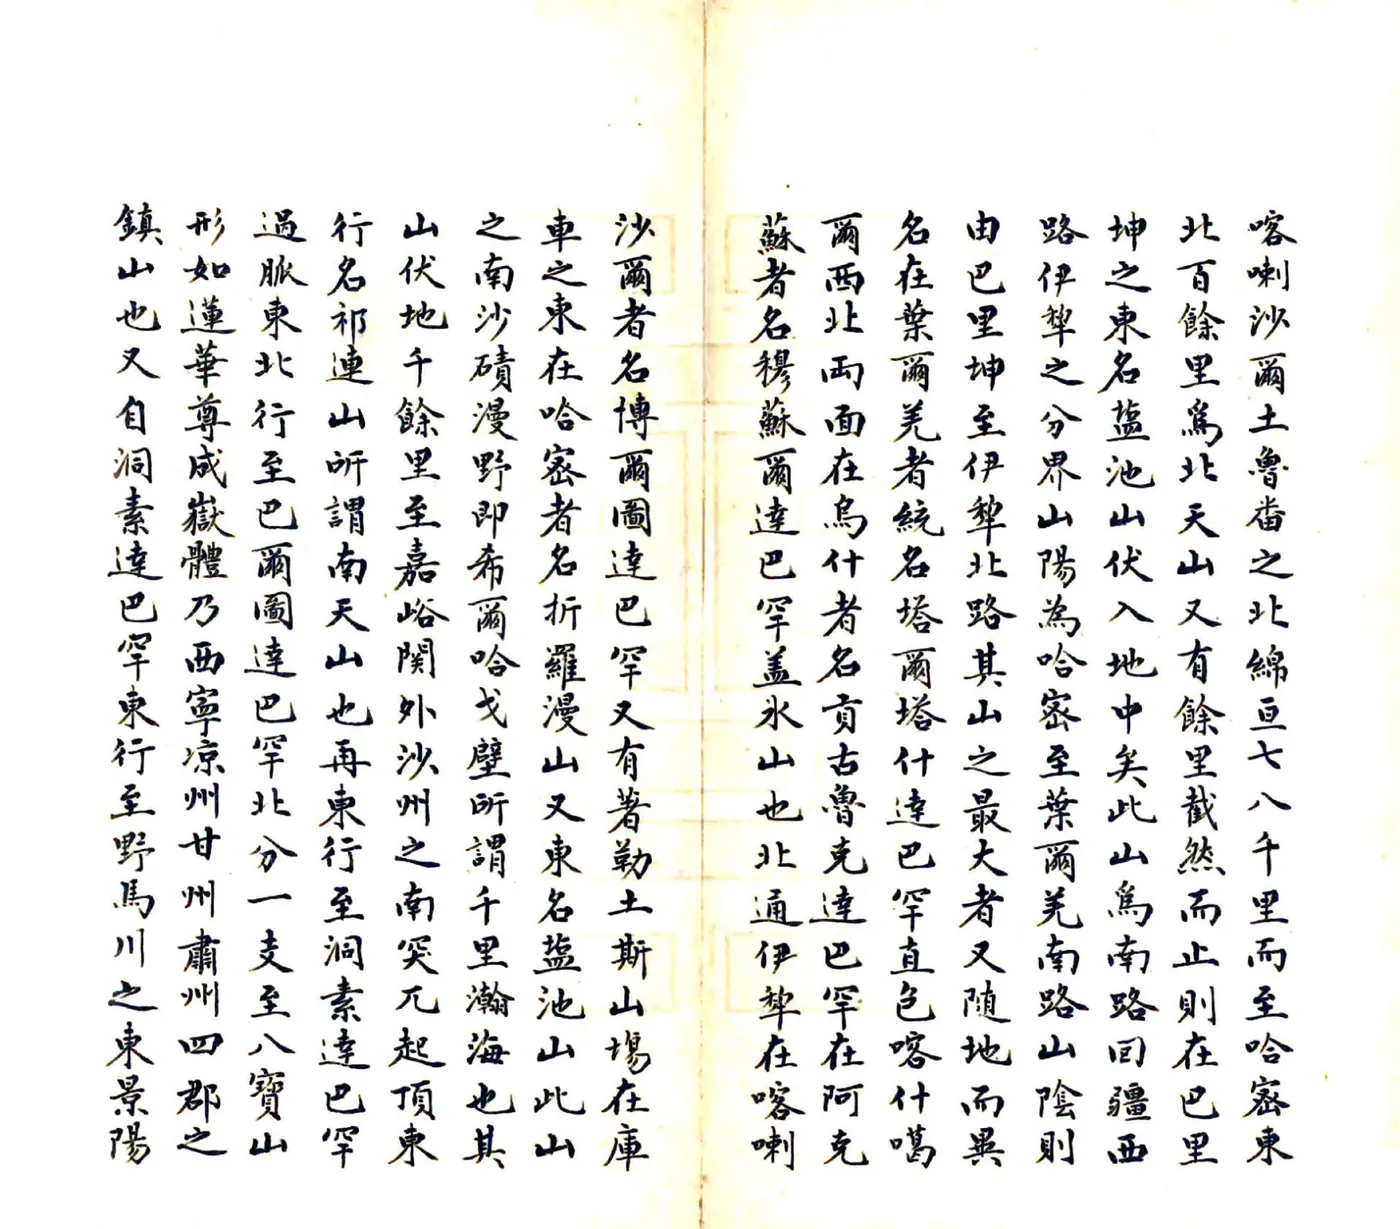 喀喇沙爾土魯番之北綿亘七八千里而至哈密東
北百餘里爲北天山又有餘里截然而止則在巴里
坤之東名盐池山伏入地中矣此山爲南路回疆西
路伊犂之分界山陽為哈密至葉爾羌南路山陰則
由巴里坤至伊犂北路其山之最大者又随地而異
名在葉爾羌者統名塔爾塔什達巴罕直包喀什噶
爾西北両面在烏什者名贡古魯克達巴罕在阿克
蘇者名穆蘇爾達巴罕盖氷山也北通伊犂在喀喇
沙爾者名博爾圖達巴罕又有著勒土斯山場在庫
車之東在哈密者名折羅漫山又東名盐池山此山
之南沙磧漫野即希爾哈戈壁所謂千里瀚海也其
山伏地千餘里至嘉峪関外沙州之南突兀起頂東
行名祁連山所謂南天山也再東行至洞素達巴罕
過脈東北行至巴爾圖達巴罕北分一支至八寶山
形如蓮華尊成嶽體乃西寧凉州甘州肅州四郡之
鎮山也又自洞素達巴罕東行至野馬川之東景陽